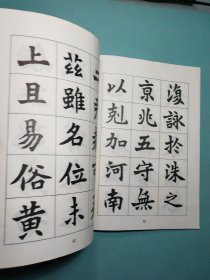 復詠於洙之
京兆五守無
以剋加河南
茲雖名位未
上且易俗黄